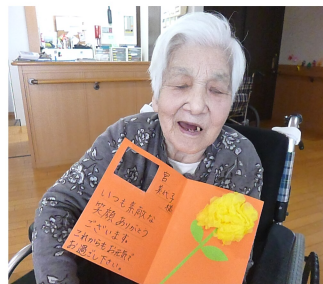 いつも素敵な
笑顔ありがとう
ございます。
これからもお元気で
お過し下さい。